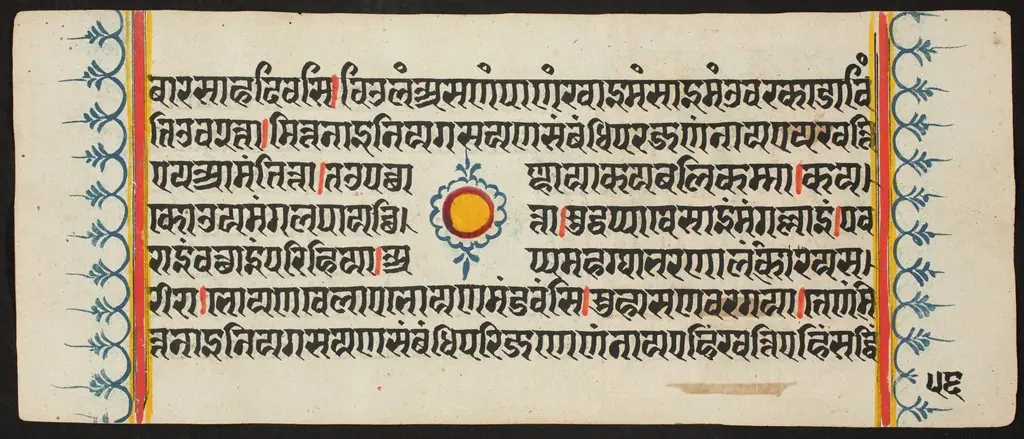 बारसाहदिवसे।विउलंअसणंपाणंखाइमंसाइमंउवरकडाविं
तिउवरत्ता।मित्तनाइनियगसयणसंबंधिपरिजणंनायएयखत्ति
एयआमंतित्ता।तउपच्छा ण्हायाकयबलिकम्मा।कय।
कोउयमंगलपायच्छि। त्ता।सुद्धप्पावेसाइंमंगल्लाइं।पव
राइंवत्थाइंपरिहिया।अ प्पमहग्घाभरणालंकारियस।
रीरा।भोयणवेलाएभोयणमंडवंसि।सुहासणवरगया।तेणंमि
त्तनाइनियगसयणसंबंधिपरिजणेणंनायएहिंखत्तिएहिंसद्धिं
५६